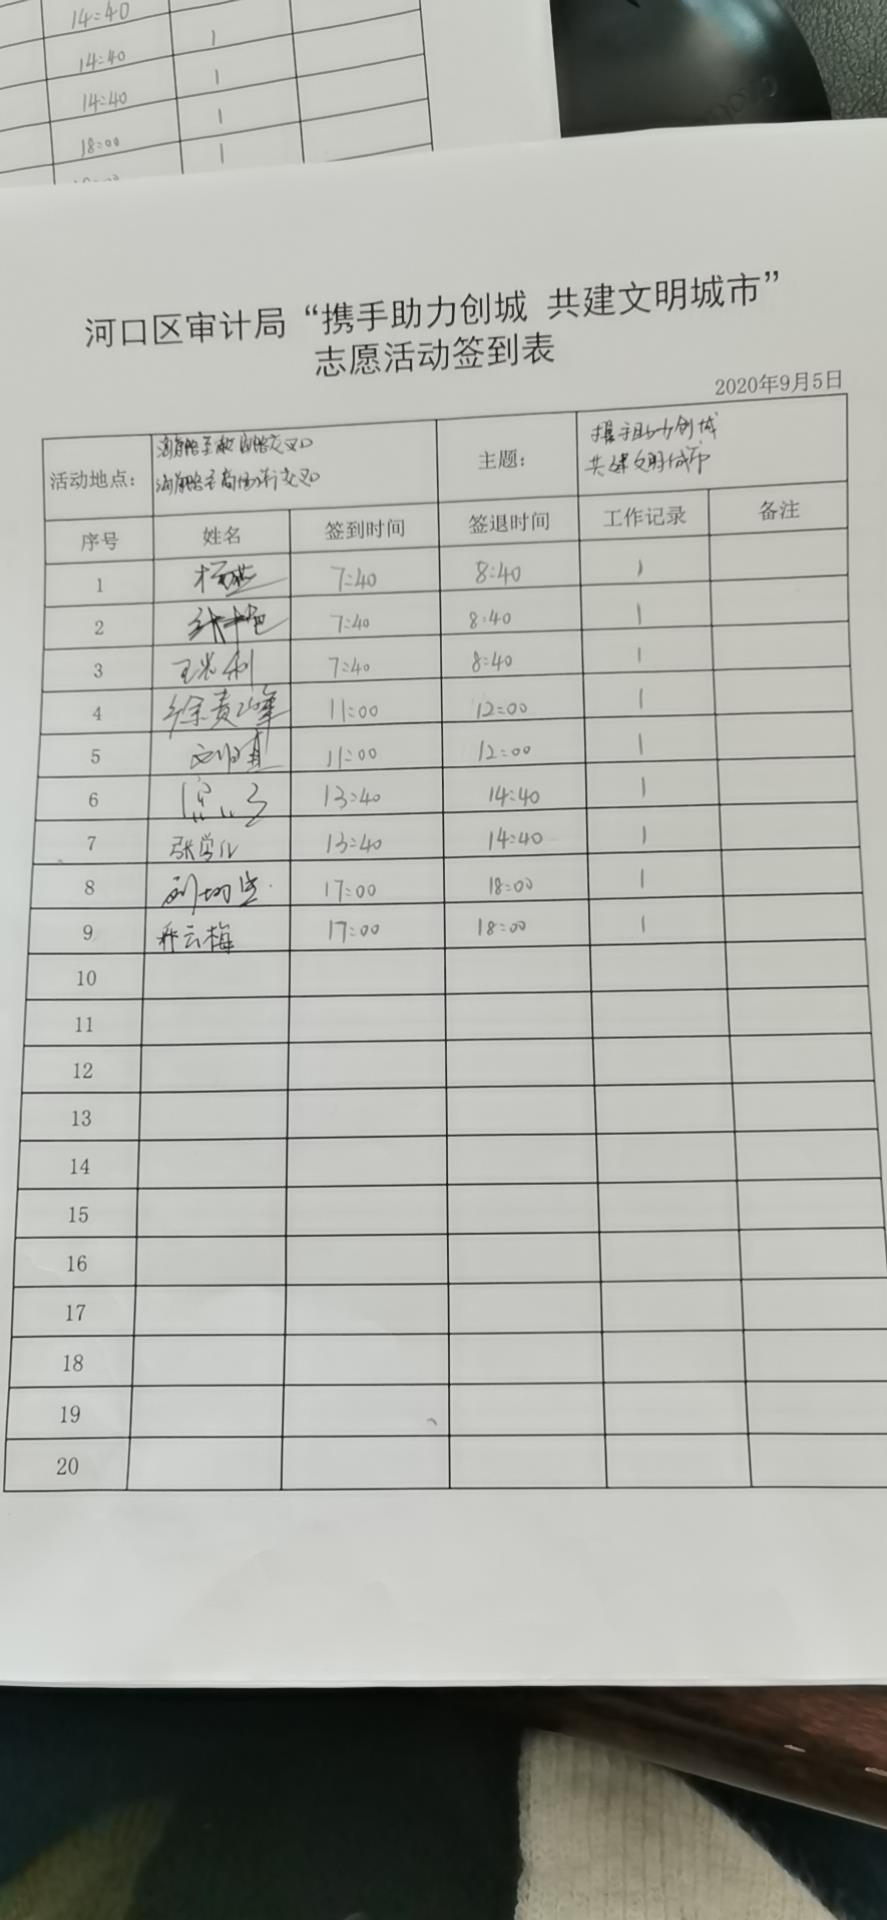 14:40
14:40 1
14:40 1
18:00 1
1
河口区审计局“携手助力创城 共建文明城市”
志愿活动签到表
2020年9月5日
活动地点: 主题: 携手助力创城
共建文明城市
序号 姓名 签到时间 签退时间 工作记录 备注
1 7:40 8:40 1
2 7:40 8:40 1
3 7:40 8:40 1
4 徐贵峰 11:00 12:00 1
5 11:00 12:00 1
6 13:40 14:40 1
7 张学儿 13:40 14:40 1
8 17:00 18:00 1
9 乔云梅 17:00 18:00 1
10
11
12
13
14
15
16
17
18
19
20